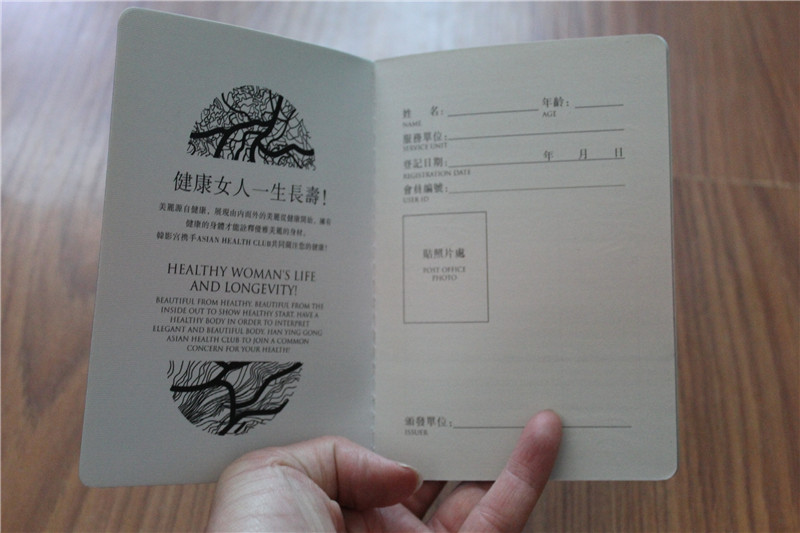 健康女人一生長壽!
美麗源自健康、展現由內而外的美麗從健康開始、擁有
健康的身體才能詮釋優雅美麗的身材。
韓影宮携手ASIAN HEALTH CLUB共同關注您的健康!
HEALTHY WOMAN'S LIFE
AND LONGEVITY!
BEAUTIFUL FROM HEALTHY, BEAUTIFUL FROM THE
INSIDE OUT TO SHOW HEALTHY START, HAVE A
HEALTHY BODY IN ORDER TO INTERPRET
ELEGANT AND BEAUTIFUL BODY, HAN YING GONG
ASIAN HEALTH CLUB TO JOIN A COMMON
CONCERN FOR YOUR HEALTH!
姓 名: 年齡:
NAME AGE
服務單位:
SERVICE UNIT
登記日期: 年 月 日
REGISTRATION DATE
會員編號:
USER ID
貼照片處
POST OFFICE
PHOTO
頒發單位:
ISSUER